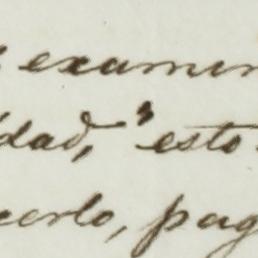 examin
idad, "esto
cerlo, pag